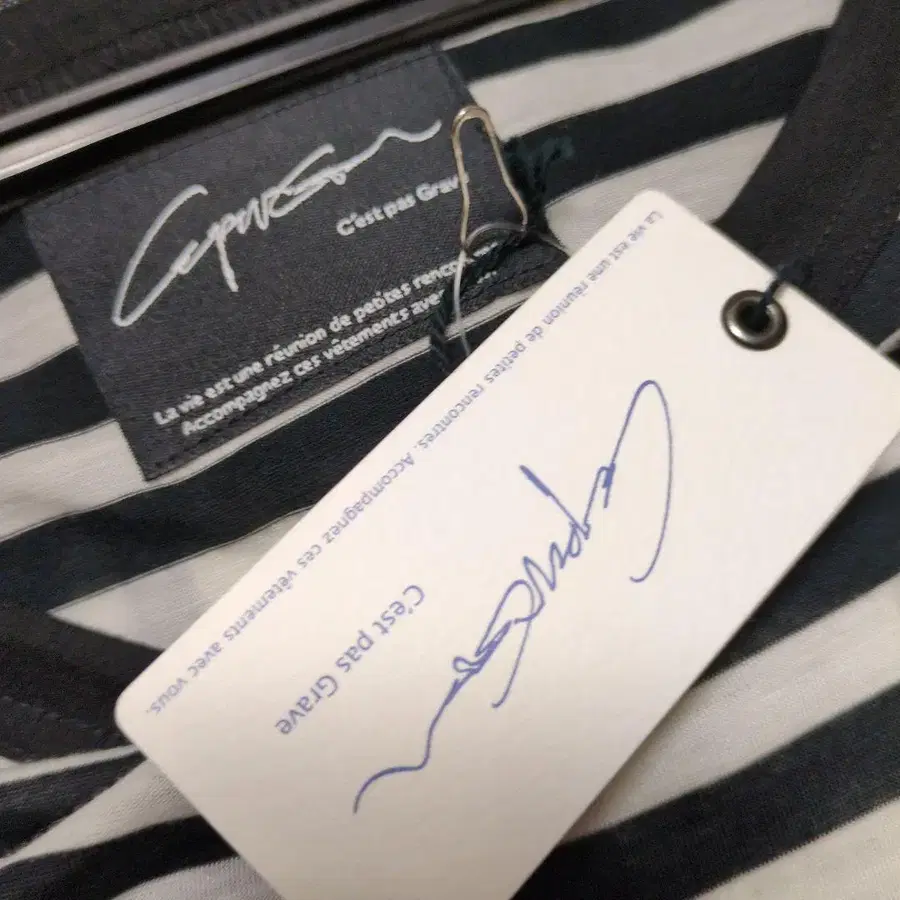 C'est pas Grave
La vie est une réunion de petites
Accompagnez ces vêtements
La vie est une réunion de petites rencontres. Accompagnez ces vêtements avec vous.
C'est pas Grave